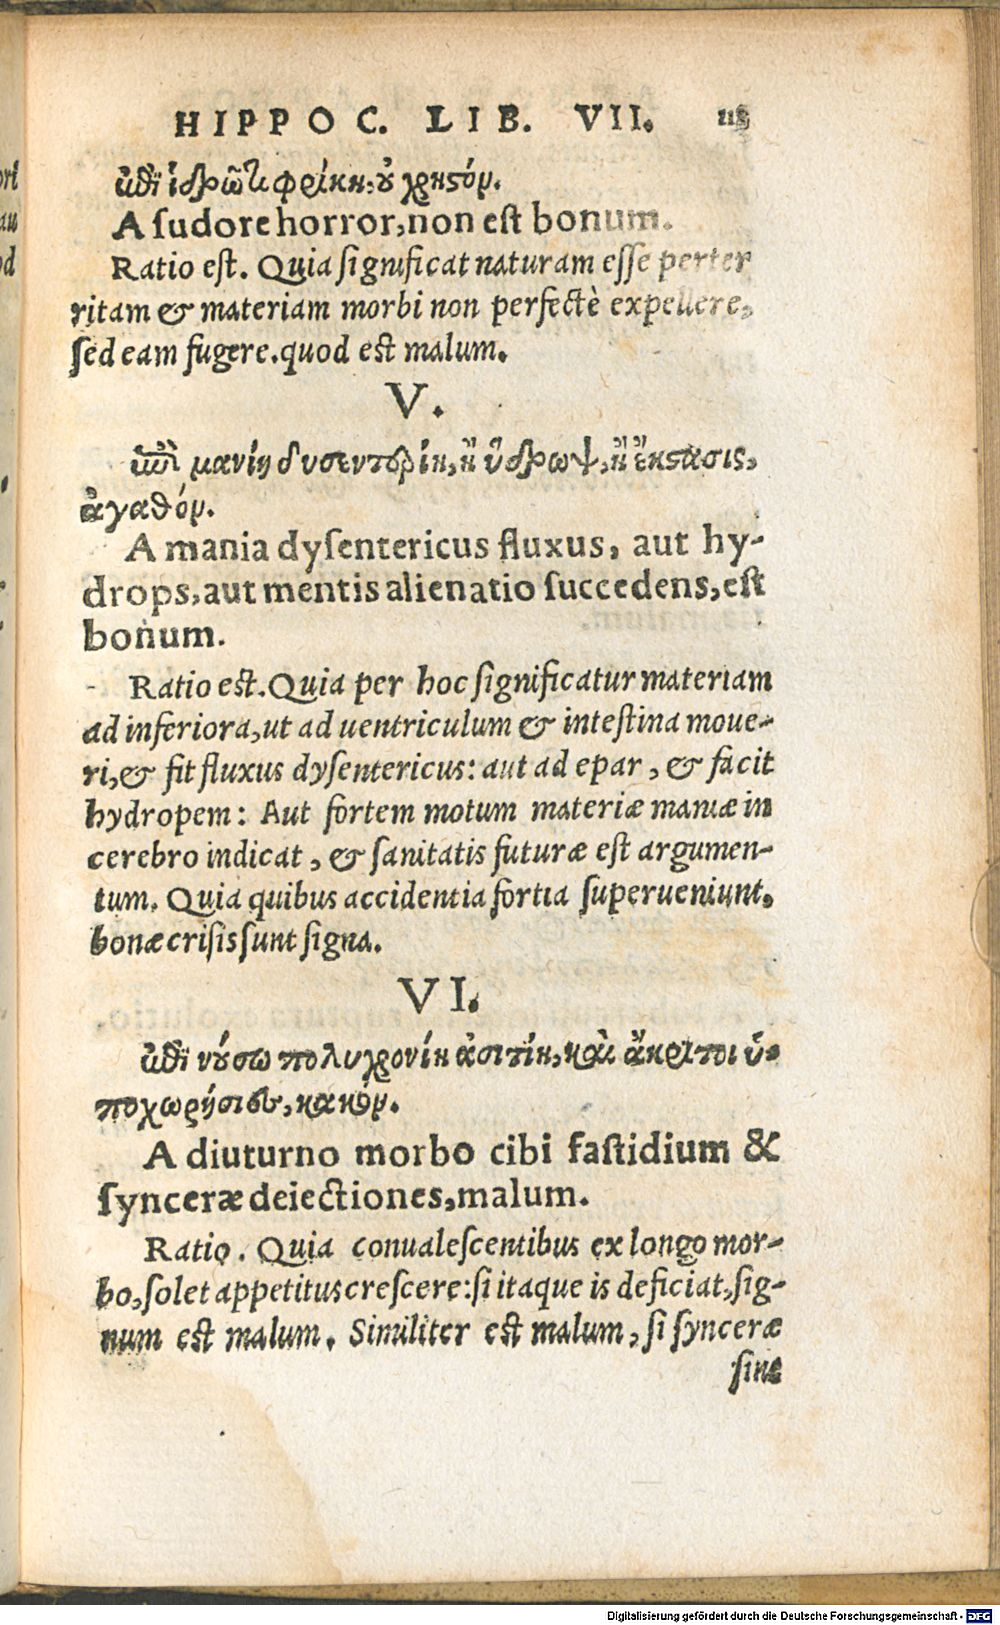 HIPPOC. LIB. VII. 118
ἐπὶ ἱδρῶτι φρίκη, οὐ χρηστόν.
A ſudore horror, non eſt bonum.
Ratio eſt. Quia ſignificat naturam eſſe perter
ritam & materiam morbi non perfectè expellere,
ſed eam fugere. quod eſt malum.
V.
ἐπὶ μανίῃ δυσεντερίη, ἢ ὕδρωψ, ἢ ἔκστασις,
ἀγαθόν.
A mania dyſentericus fluxus, aut hy-
drops, aut mentis alienatio ſuccedens, eſt
bonum.
Ratio eſt. Quia per hoc ſignificatur materiam
ad inferiora, ut ad uentriculum & inteſtina moue-
ri, & fit fluxus dyſentericus: aut ad epar, & facit
hydropem: Aut fortem motum materiæ maniæ in
cerebro indicat, & ſanitatis futuræ eſt argumen-
tum. Quia quibus accidentia fortia ſuperueniunt,
bonæ criſis ſunt ſigna.
VI.
ἐπὶ νούσῳ πολυχρονίῃ ἀσιτίη, καὶ ἄκρητοι ὑ-
ποχωρήσιες, κακόν.
A diuturno morbo cibi faſtidium &
ſynceræ deiectiones, malum.
Ratio. Quia conualeſcentibus ex longo mor-
bo, ſolet appetitus creſcere: ſi itaque is deficiat, ſig-
num eſt malum. Similiter eſt malum, ſi ſynceræ
ſine
Digitalisierung gefördert durch die Deutsche Forschungsgemeinschaft - DFG